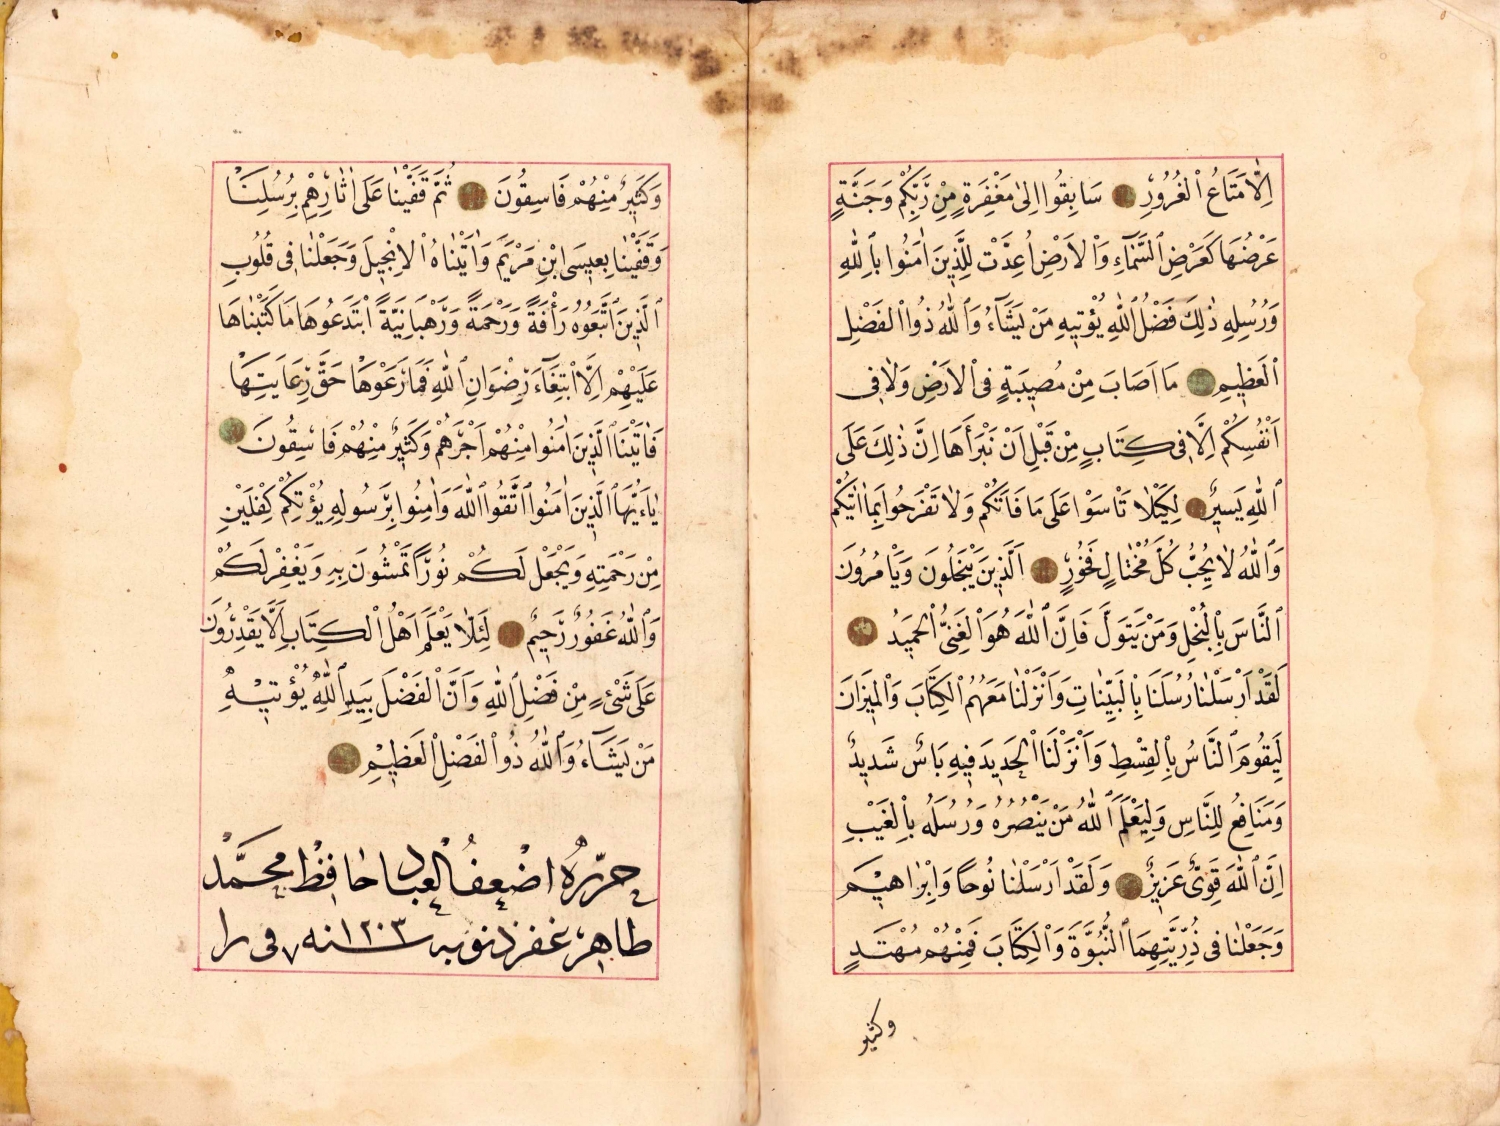 اِلَّا مَتَاعُ الْغُرُورِ سَابِقُوا اِلٰى مَغْفِرَةٍ مِنْ رَبِّكُمْ وَجَنَّةٍ
عَرْضُهَا كَعَرْضِ السَّمَاءِ وَالْاَرْضِ اُعِدَّتْ لِلَّذِينَ اٰمَنُوا بِاللّٰهِ
وَرُسُلِهِ ذٰلِكَ فَضْلُ اللّٰهِ يُؤْتِيهِ مَنْ يَشَاءُ وَاللّٰهُ ذُوا الْفَضْلِ
الْعَظِيمِ مَا اَصَابَ مِنْ مُصِيبَةٍ فِى الْاَرْضِ وَلَا فِى
اَنْفُسِكُمْ اِلَّا فِى كِتَابٍ مِنْ قَبْلِ اَنْ نَبْرَأَهَا اِنَّ ذٰلِكَ عَلَى
اللّٰهِ يَسِيرٌ لِكَيْلَا تَاْسَوْا عَلَى مَا فَاتَكُمْ وَلَا تَفْرَحُوا بِمَا اٰتٰيكُمْ
وَاللّٰهُ لَا يُحِبُّ كُلَّ مُخْتَالٍ فَخُورٍ اَلَّذِينَ يَبْخَلُونَ وَيَاْمُرُونَ
النَّاسَ بِالْبُخْلِ وَمَنْ يَتَوَلَّ فَاِنَّ اللّٰهَ هُوَ الْغَنِىُّ الْحَمِيدُ
لَقَدْ اَرْسَلْنَا رُسُلَنَا بِالْبَيِّنَاتِ وَاَنْزَلْنَا مَعَهُمُ الْكِتَابَ وَالْمِيزَانَ
لِيَقُومَ النَّاسُ بِالْقِسْطِ وَاَنْزَلْنَا الْحَدِيدَ فِيهِ بَاْسٌ شَدِيدٌ
وَمَنَافِعُ لِلنَّاسِ وَلِيَعْلَمَ اللّٰهُ مَنْ يَنْصُرُهُ وَرُسُلَهُ بِالْغَيْبِ
اِنَّ اللّٰهَ قَوِىٌّ عَزِيزٌ وَلَقَدْ اَرْسَلْنَا نُوحًا وَاِبْرٰاهِيمَ
وَجَعَلْنَا فِى ذُرِّيَّتِهِمَا النُّبُوَّةَ وَالْكِتَابَ فَمِنْهُمْ مُهْتَدٍ
وكثير
وَكَثِيرٌ مِنْهُمْ فَاسِقُونَ ثُمَّ قَفَّيْنَا عَلَى اٰثَارِهِمْ بِرُسُلِنَا
وَقَفَّيْنَا بِعِيسَى ابْنِ مَرْيَمَ وَاٰتَيْنَاهُ الْاِنْجِيلَ وَجَعَلْنَا فِى قُلُوبِ
الَّذِينَ اتَّبَعُوهُ رَأْفَةً وَرَحْمَةً وَرَهْبَانِيَّةً ابْتَدَعُوهَا مَا كَتَبْنَاهَا
عَلَيْهِمْ اِلَّا ابْتِغَاءَ رِضْوَانِ اللّٰهِ فَمَا رَعَوْهَا حَقَّ رِعَايَتِهَا
فَاٰتَيْنَا الَّذِينَ اٰمَنُوا مِنْهُمْ اَجْرَهُمْ وَكَثِيرٌ مِنْهُمْ فَاسِقُونَ
يَاءَيُّهَا الَّذِينَ اٰمَنُوا اتَّقُوا اللّٰهَ وَاٰمِنُوا بِرَسُولِهِ يُؤْتِكُمْ كِفْلَيْنِ
مِنْ رَحْمَتِهِ وَيَجْعَلْ لَكُمْ نُورًا تَمْشُونَ بِهِ وَيَغْفِرْ لَكُمْ
وَاللّٰهُ غَفُورٌ رَحِيمٌ لِئَلَّا يَعْلَمَ اَهْلُ الْكِتَابِ اَلَّا يَقْدِرُونَ
عَلَى شَىْءٍ مِنْ فَضْلِ اللّٰهِ وَاَنَّ الْفَضْلَ بِيَدِ اللّٰهِ يُؤْتِيهِ
مَنْ يَشَاءُ وَاللّٰهُ ذُو الْفَضْلِ الْعَظِيمِ
حرّره اضعف العباد حافظ محمّد
طاهر غفر ذنوبه سنه ١٢٠٣ فى را